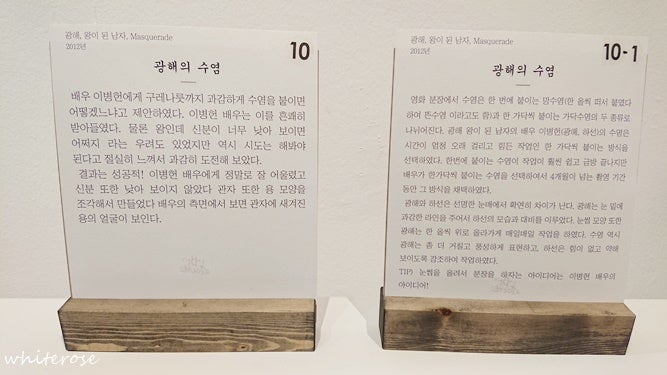 광해, 왕이 된 남자, Masquerade
2012년
10
광해의 수염
배우 이병헌에게 구레나룻까지 과감하게 수염을 붙이면
어떻겠느냐고 제안하였다. 이병헌 배우는 이를 흔쾌히
받아들였다. 물론 왕인데 신분이 너무 낮아 보이면
어쩌지 라는 우려도 있었지만 역시 시도는 해봐야
된다고 절실히 느껴서 과감히 도전해 보았다.
결과는 성공적! 이병헌 배우에게 정말로 잘 어울렸고
신분 또한 낮아 보이지 않았다 관자 또한 용 모양을
조각해서 만들었다 배우의 측면에서 보면 관자에 새겨진
용의 얼굴이 보인다.
광해, 왕이 된 남자, Masquerade
2012년
10-1
광해의 수염
영화 분장에서 수염은 한 번에 붙이는 망수염(한 올씩 떠서 붙였다
하여 뜬수염 이라고도 함)과 한 가닥씩 붙이는 가닥수염의 두 종류로
나뉘어진다. 광해 왕이 된 남자의 배우 이병헌(광해, 하선)의 수염은
시간이 엄청 오래 걸리고 힘든 작업인 한 가닥씩 붙이는 방식을
선택하였다. 한번에 붙이는 수염이 작업이 훨씬 쉽고 금방 끝나지만
배우가 한가닥씩 붙이는 수염을 선택하여서 4개월이 넘는 촬영 기간
동안 그 방식을 채택하였다.
광해와 하선은 선명한 눈매에서 확연히 차이가 난다. 광해는 눈 밑에
과감한 라인을 주어서 하선의 모습과 대비를 이루었다. 눈썹 모양 또한
광해는 한 올씩 위로 올라가게 매일매일 작업을 하였다. 수염 역시
광해는 좀 더 거칠고 풍성하게 표현하고, 하선은 힘이 없고 약해
보이도록 강조하여 작업하였다.
TIP) 눈썹을 올려서 분장을 하자는 아이디어는 이병헌 배우의
아이디어!
whiterose